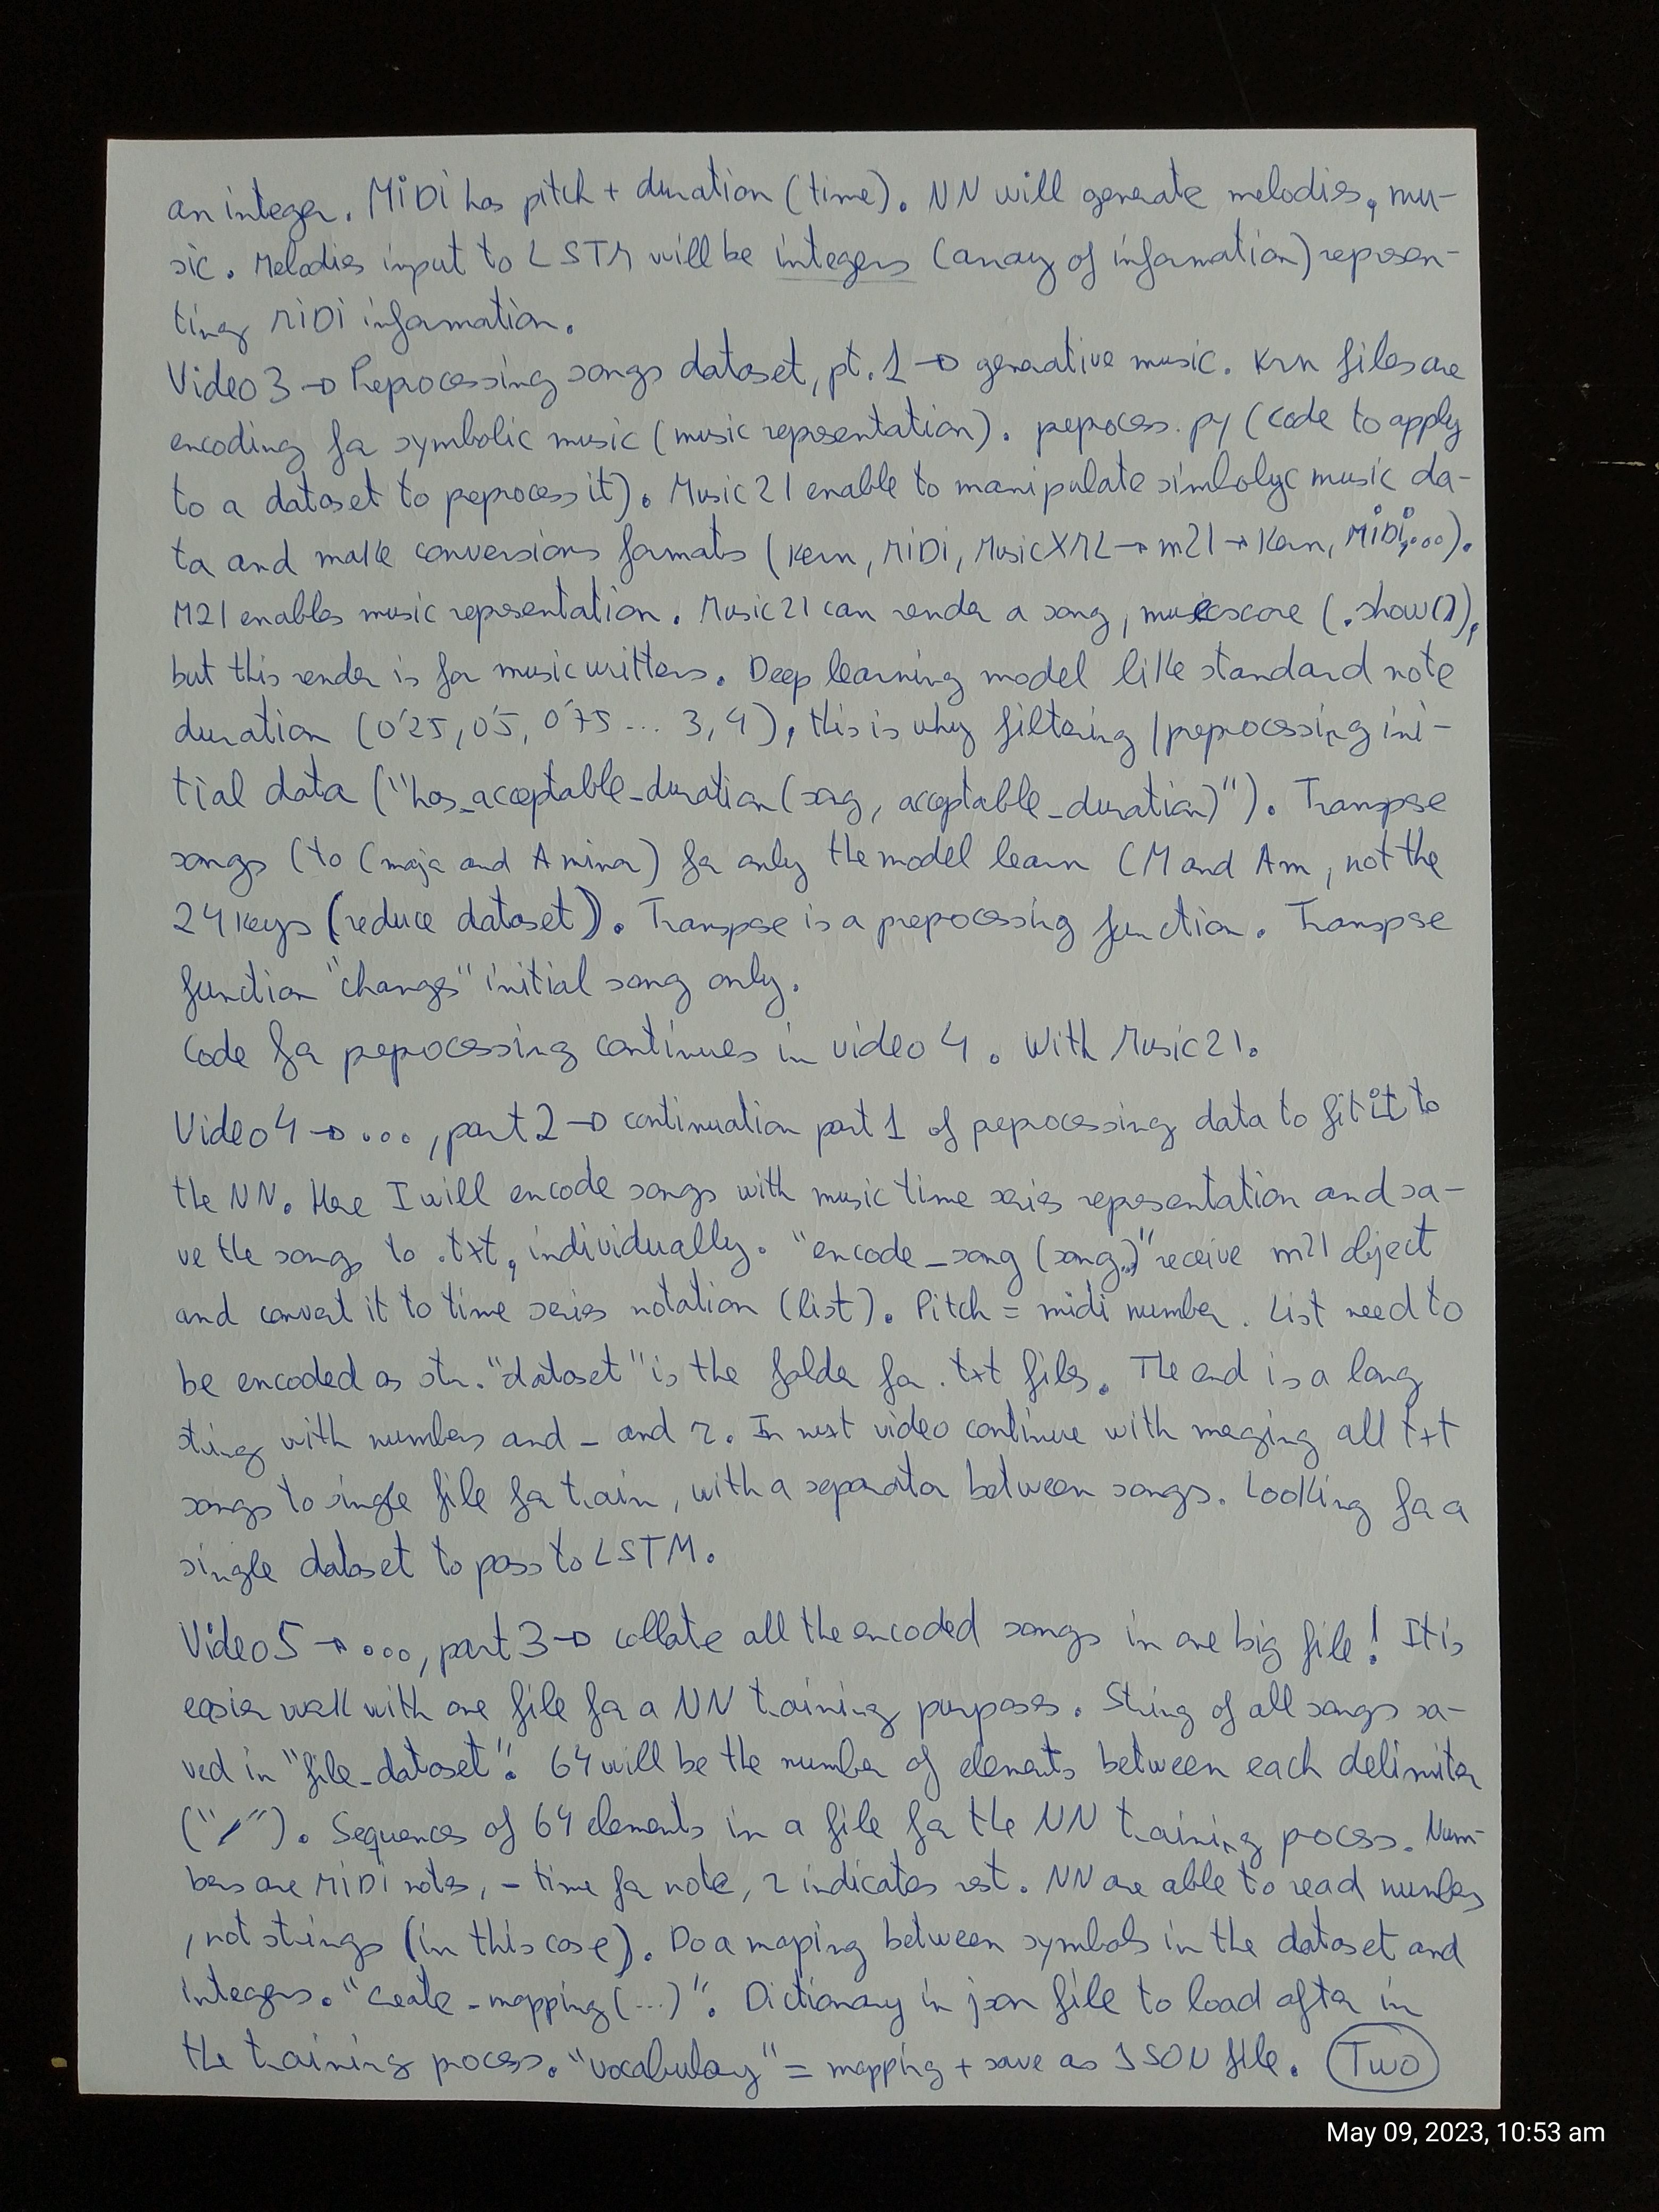 an integer. MiDi has pitch + duration (time). NN will generate melodies, mu-
sic. Melodies input to LSTM will be integers (array of information) represen-
ting MiDi information.
Video 3 → Preprocessing songs dataset, pt. 1 → generative music. Krn files are
encoding for symbolic music (music representation). preprocess.py (code to apply
to a dataset to preprocess it). Music21 enable to manipulate simbolyc music da-
ta and make conversions formats (Kern, MiDi, MusicXML → m21 → Kern, MiDi,...).
M21 enables music representation. Music21 can render a song, musescore (.show()),
but this render is for music writters. Deep learning model like standard note
duration (0'25, 0'5, 0'75 ... 3, 4), this is why filtering / preprocessing ini-
tial data ("has_acceptable_duration(song, acceptable_duration)"). Transpose
songs (to C major and A minor) for only the model learn CM and Am, not the
24 keys (reduce dataset). Transpose is a preprocessing function. Transpose
function "changes" initial song only.
Code for preprocessing continues in video 4. With Music21.
Video 4 → ..., part 2 → continuation part 1 of preprocessing data to fit it to
the NN. Here I will encode songs with music time series representation and sa-
ve the song to .txt, individually. "encode_song (song..)" receive m21 object
and convert it to time series notation (list). Pitch = midi number. List need to
be encoded as str. "dataset" is the folder for .txt files. The end is a long
string with numbers and _ and r. In next video continue with merging all txt
songs to single file for train, with a separator between songs. Looking for a
single dataset to pass to LSTM.
Video 5 → ..., part 3 → collate all the encoded songs in one big file! It is
easier work with one file for a NN training purposes. String of all songs sa-
ved in "file_dataset". 64 will be the number of elements between each delimiter
("/"). Sequences of 64 elements in a file for the NN training process. Num-
bers are MiDi notes, - time for note, r indicates rest. NN are able to read numbers
, not strings (in this case). Do a maping between symbols in the dataset and
integers. "create_mapping(...)". Dictionary in json file to load after in
the training process. "vocabulary" = mapping + save as JSON file. Two
May 09, 2023, 10:53 am